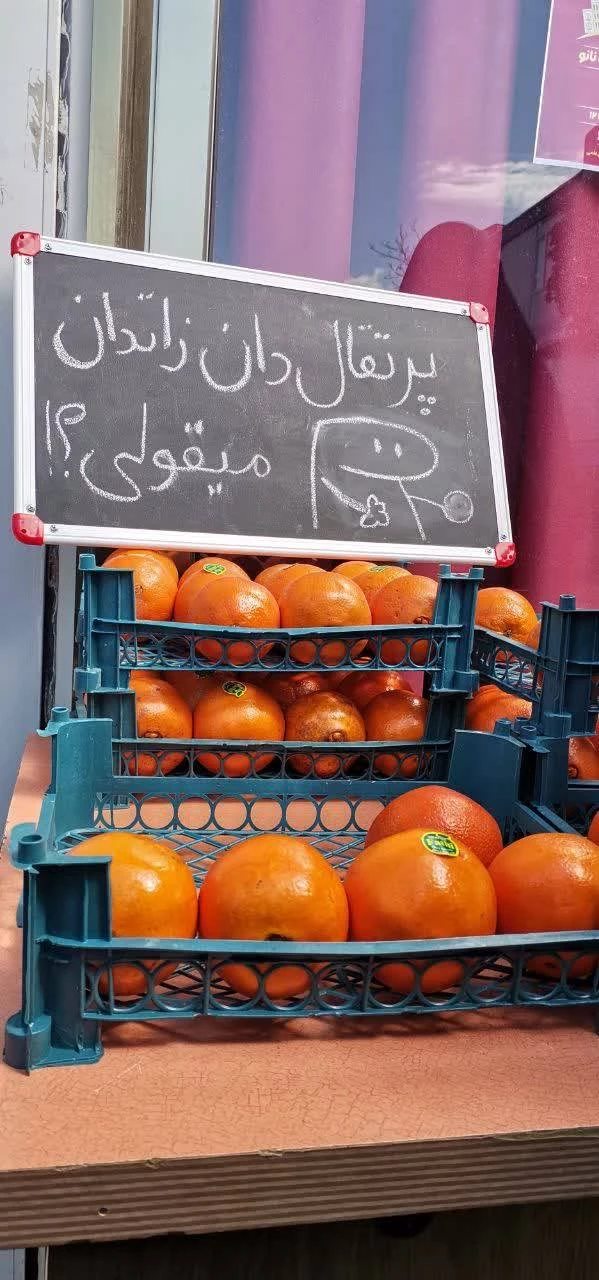 پرتقال دان زاتدان
میقولی؟!
نانو